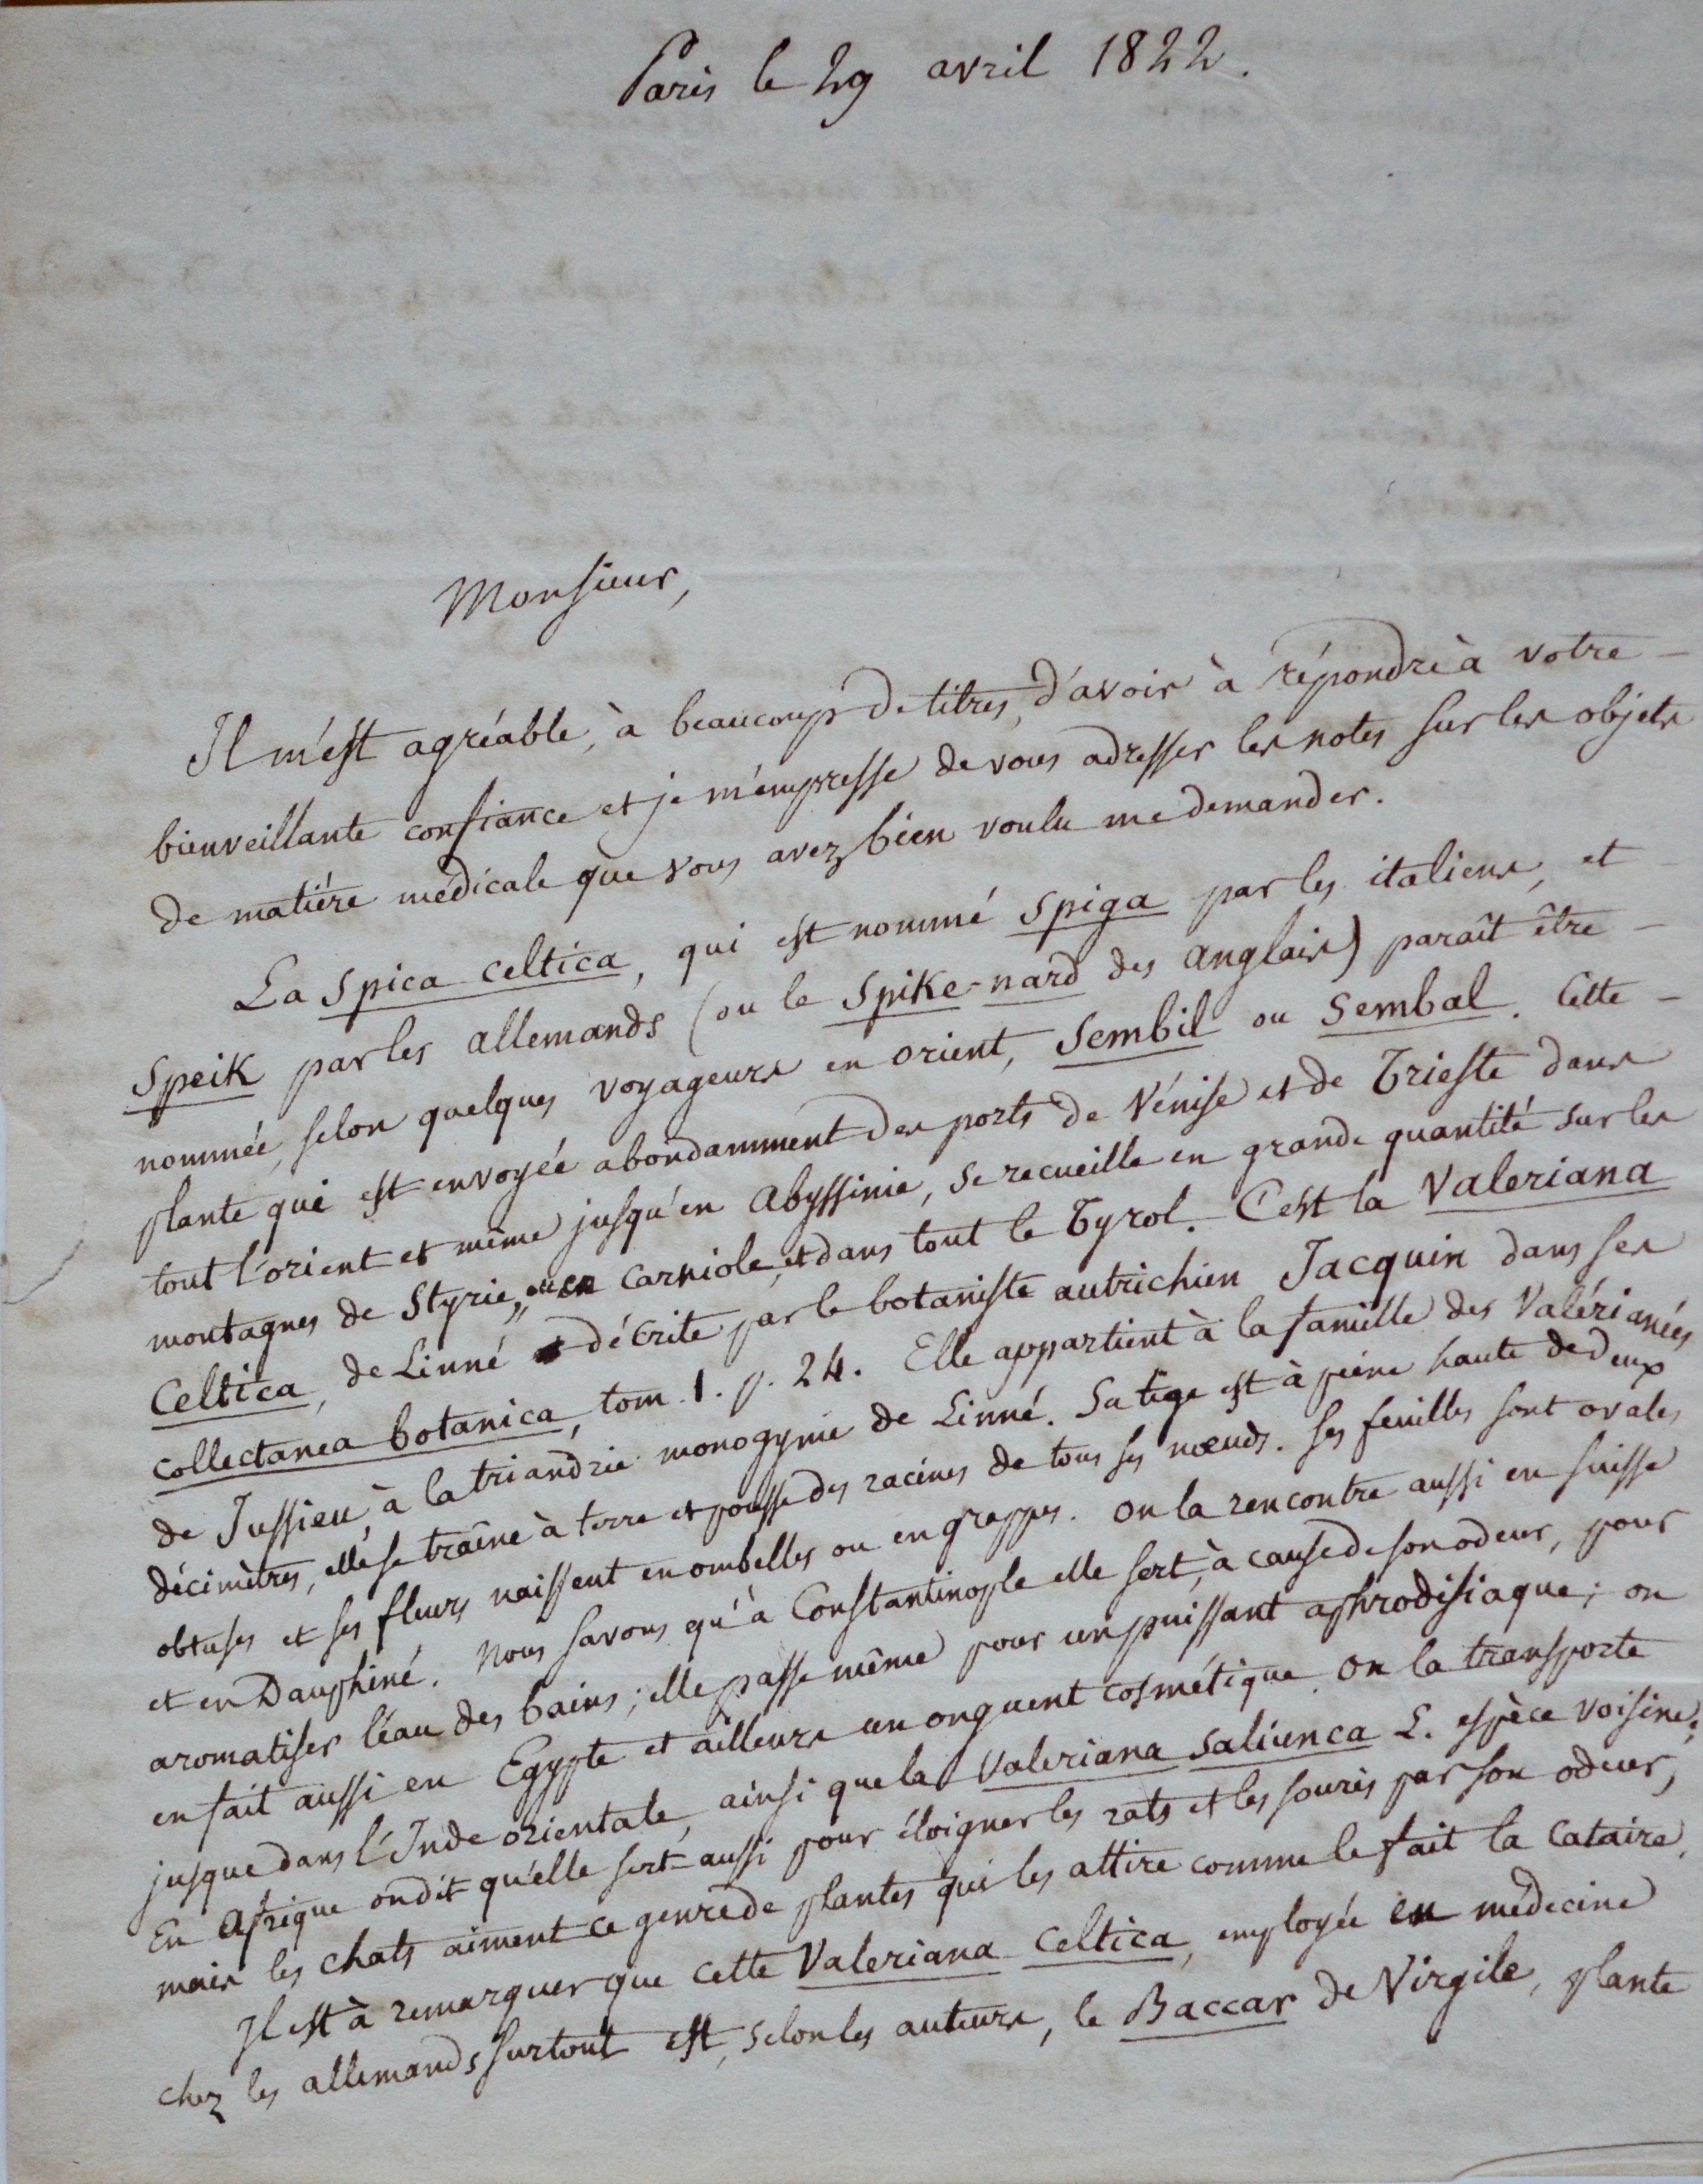 Paris le 29 avril 1822.
Monsieur,
Il m'est agréable, à beaucoup de titres, d'avoir à répondre à votre
bienveillante confiance et je m'empresse de vous adresser les notes sur les objets
de matière médicale que vous avez bien voulu me demander.
La Spica celtica, qui est nommé Spiga par les italiens, et
Speik par les allemands (ou le Spike-nard des anglais) paraît être
nommée, selon quelques voyageurs en orient, Sembil ou Sembal. Cette
plante qui est envoyée abondamment des ports de Vénise et de Trieste dans
tout l'orient et même jusqu'en Abyssinie, se recueille en grande quantité sur les
montagnes de Styrie, ou en Carniole, et dans tout le Tyrol. C'est la Valeriana
Celtica, de Linné décrite par le botaniste autrichien Jacquin dans ses
collectanea botanica, tom. 1. p. 24. Elle appartient à la famille des Valérianées
de Jussieu, à la triandrie monogynie de Linné. Sa tige est à peine haute de deux
décimètres, elle se traîne à terre et pousse des racines de tous ses nœuds. Ses feuilles sont ovales
obtuses et ses fleurs naissent en ombelles ou en grappes. On la rencontre aussi en Suisse
et en Dauphiné. Nous savons qu'à Constantinople elle sert, à cause de son odeur, pour
aromatiser l'eau des bains; elle passe même pour un puissant aphrodisiaque; on
en fait aussi en Egypte et ailleurs un onguent cosmétique. On la transporte
jusque dans l'Inde orientale, ainsi que la Valeriana saliunca L. espèce voisine.
En Afrique on dit qu'elle sert aussi pour éloigner les rats et les souris par son odeur,
mais les chats aiment ce genre de plantes qui les attire comme le fait la cataire.
Il est à remarquer que cette Valeriana Celtica, employée en médecine
chez les allemands surtout est, selon les auteurs, le Baccar de Virgile, plante